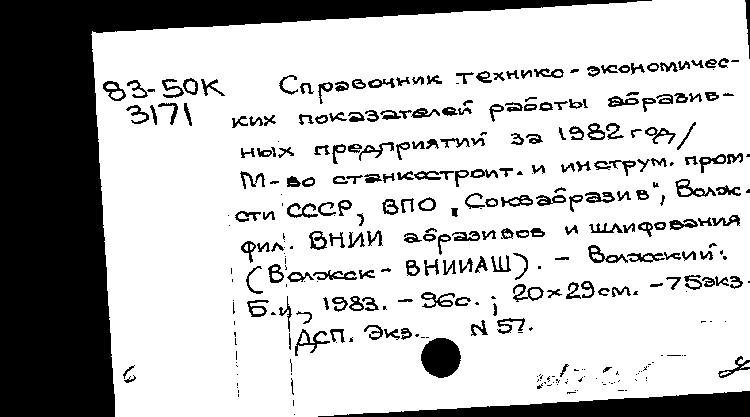 83-50К Справочник технико-экономичес-
3171 ких показателей работы абразив-
ных предприятий за 1982 год/
М-во станкостроит. и инструм. пром-
сти СССР, ВПО "Союзабразив", Волж.
фил. ВНИИ абразивов и шлифования
(Волжск-ВНИИАШ). - Волжский:
Б.и., 1983. - 96с.; 20×29см. - 75экз.
ДСП. Экз. N 57.
6